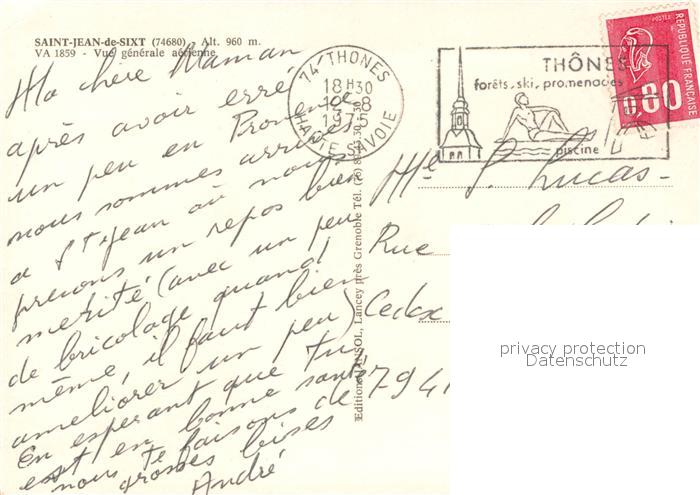 SAINT-JEAN-de-SIXT (74680) - Alt. 960 m.
VA 1859 - Vue générale aérienne
Ma chère Maman
après avoir erré
un peu en Provence
nous sommes arrivés
a St Jean où nous
prenons un repos bien
merité (avec un peu
de bricolage quand
même, il faut bien
ameliorer un peu)
En esperant que tu
est en bonne santé
nous te faisons de
grosses bises
André
74 THONES
18H30
19-8
1975
HAUTE-SAVOIE
THÔNES
forêts, ski, promenades
piscine
POSTES
REPUBLIQUE FRANÇAISE
0,80
Editions ANSOL, Lancey près Grenoble Tél.
P. Lucas
Rue
Cedex
privacy protection
Datenschutz